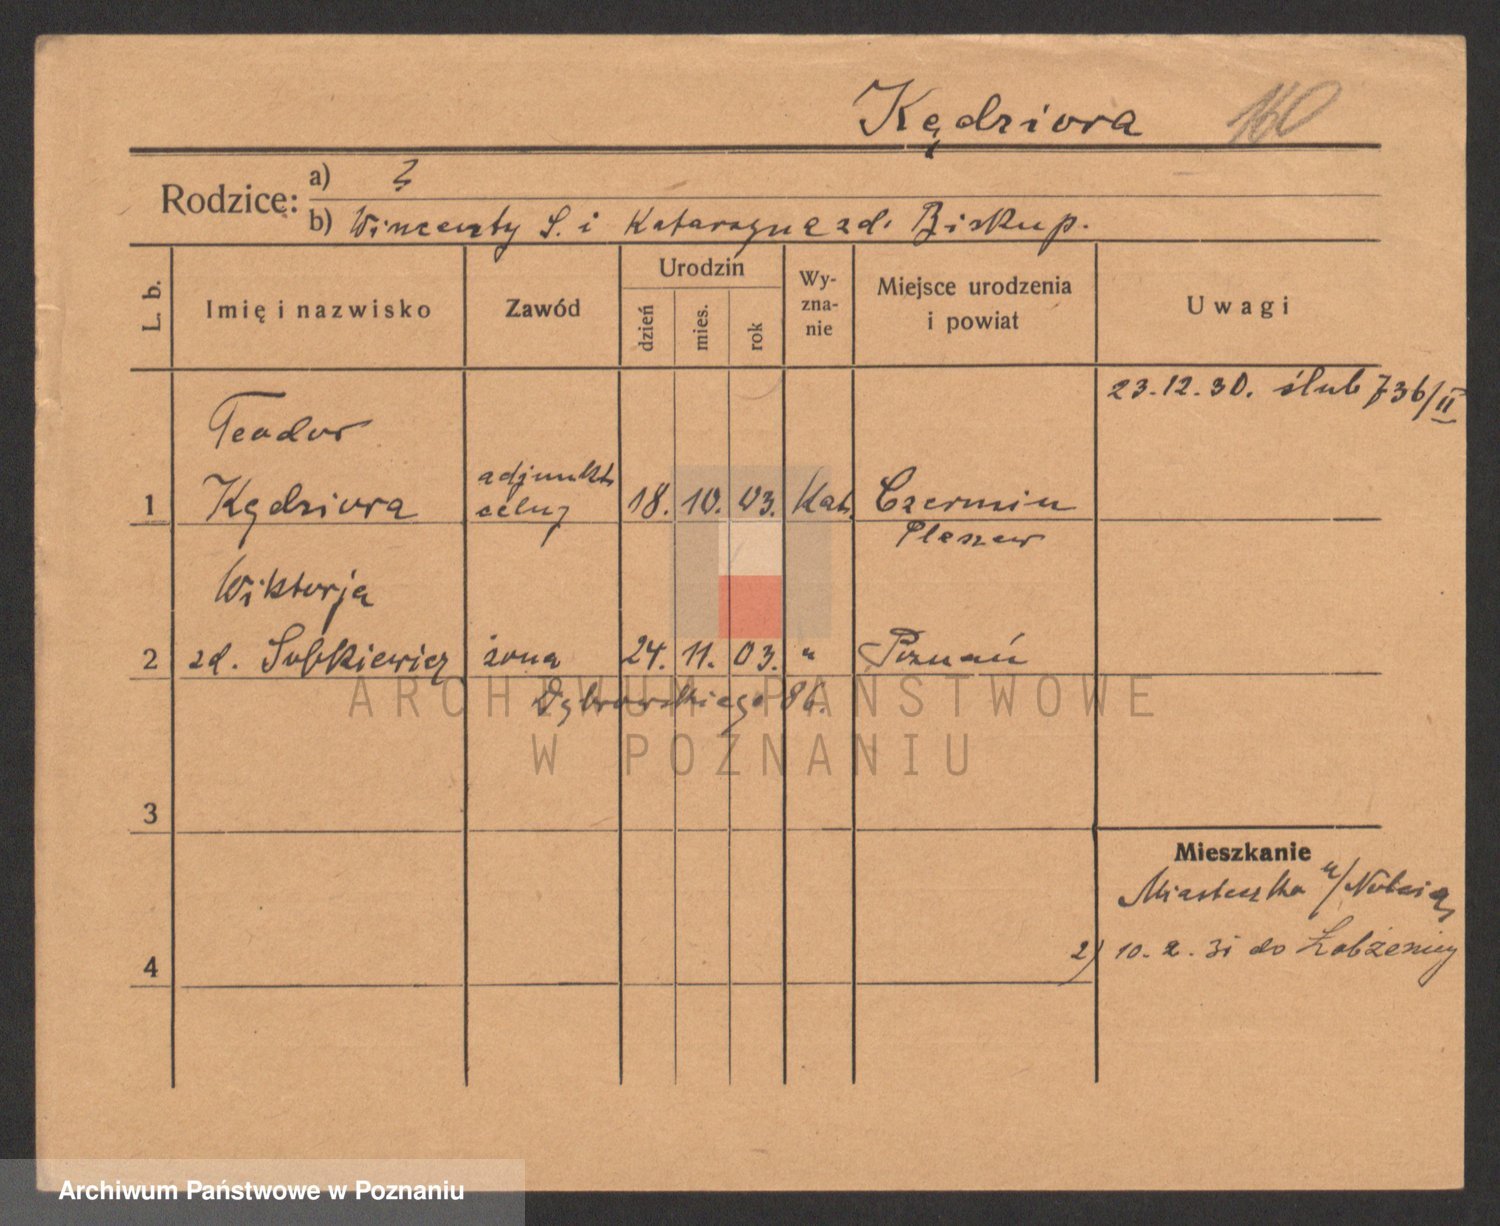 Kędziora 160
Rodzice: a) ?
b) Wincenty S. i Katarzyna zd. Biskup.
L. b. Imię i nazwisko Zawód Urodzin dzień mies. rok Wy-zna-nie Miejsce urodzenia i powiat Uwagi
23.12.30. ślub 736/II
Teodor
1 Kędziora adjunkt celny 18. 10. 03. Kat. Czermin
Pleszew
Wiktorja
2 zd. Sobkiewicz żona 24. 11. 03. " Poznań
Dąbrowskiego 86.
ARCHIWUM PAŃSTWOWE
W POZNANIU
3
Mieszkanie
Miasteczka n/Notecią
4 2) 10. 2. 31 do Łobżenicy
Archiwum Państwowe w Poznaniu